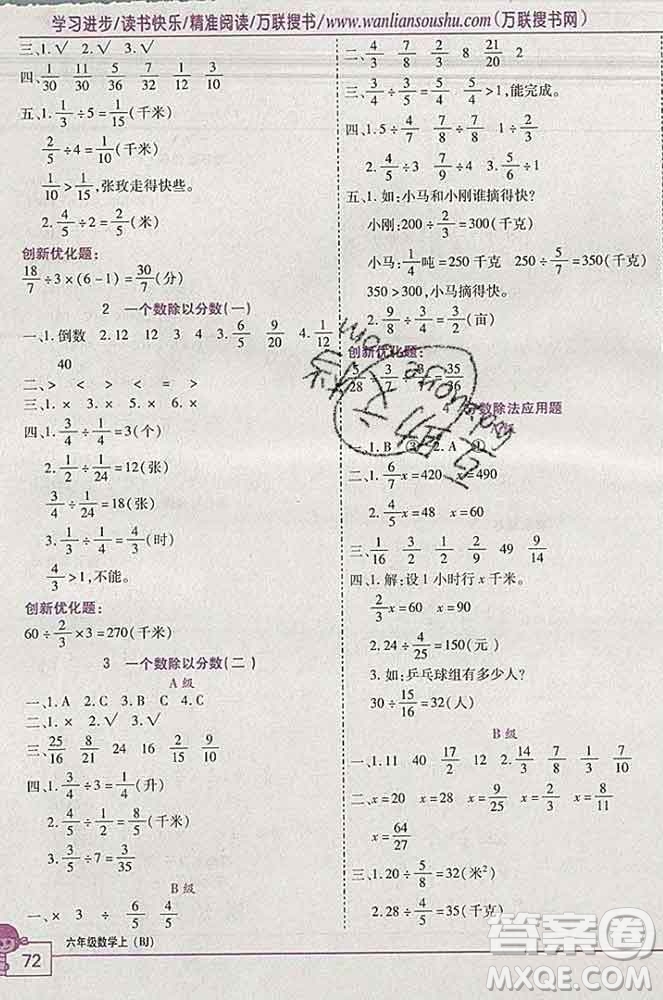 学习进步/读书快乐/精准阅读/万联搜书/www.wanliansoushu.com(万联搜书网)
三、1.√ 2.√ 3.√
四、1/30 11/30 5/24 7/32 1/12 3/10
五、1. 1/3÷5=1/15(千米)
2/5÷4=1/10(千米)
1/10>1/15,张玫走得快些。
2. 4/5÷2=2/5(米)
创新优化题:
18/7÷3×(6-1)=30/7(分)
2 一个数除以分数(一)
一、1.倒数 2.12 12 3 4 3. 6/5 9/20 4. 1/12
40
二、> < > > = <
三、1.× 3.× 3.× 4.×
四、1. 1/4÷1/12=3(个)
1/4÷1/48=12(张)
3/4÷1/24=18(张)
2. 1/3÷1/4=4/3(时)
4/3>1,不能。
创新优化题:
60÷2/3×3=270(千米)
3 一个数除以分数(二)
A级
一、1.A 2.C 3.B 4.C
二、1.× 2.√ 3.√
三、25/16 8/21 24 16 2/15 7/9
四、1. 3/4÷3=1/4(升)
2. 4/5÷1/2=8/5(千米)
3. 3/5÷7=3/35
B级
一、× 3 ÷ 6/5 4/5
六年级数学上(BJ)
72
二、4/3 3/7 2/3 8 21/20 2
三、3/4÷3/5=5/4 5/4>1,能完成。
四、1. 5÷4/5 7/8÷7/8 1÷2/3
2. 4/5÷2/3 7/9÷4 5÷2/5
五、1.如:小马和小刚谁摘得快?
小刚:200÷2/3=300(千克)
小马:1/4吨=250千克 250÷5/7=350(千克)
350>300,小马摘得快。
2. 9/8÷3/4=3/2(亩)
创新优化题:
数除法应用题
一、1.B ③ 2.A ①
二、1. 6/7x=420 x=490
2. 4/5x=48 x=60
三、1/16 3/32 2/9 1/12 49 9/14
四、1.解:设1小时行x千米。
2/3x=60 x=90
2. 24÷4/25=150(元)
3.如:乒乓球组有多少人?
30÷15/16=32(人)
B级
一、1.11 40 17/2 2. 14/3 7/8 3. 1/2 7/10
二、x=20 x=28 x=9/25 x=8/11
x=64/27
三、1. 20÷5/8=32(米²)
2. 28÷4/5=35(千克)
答案圈
MXQE.COM